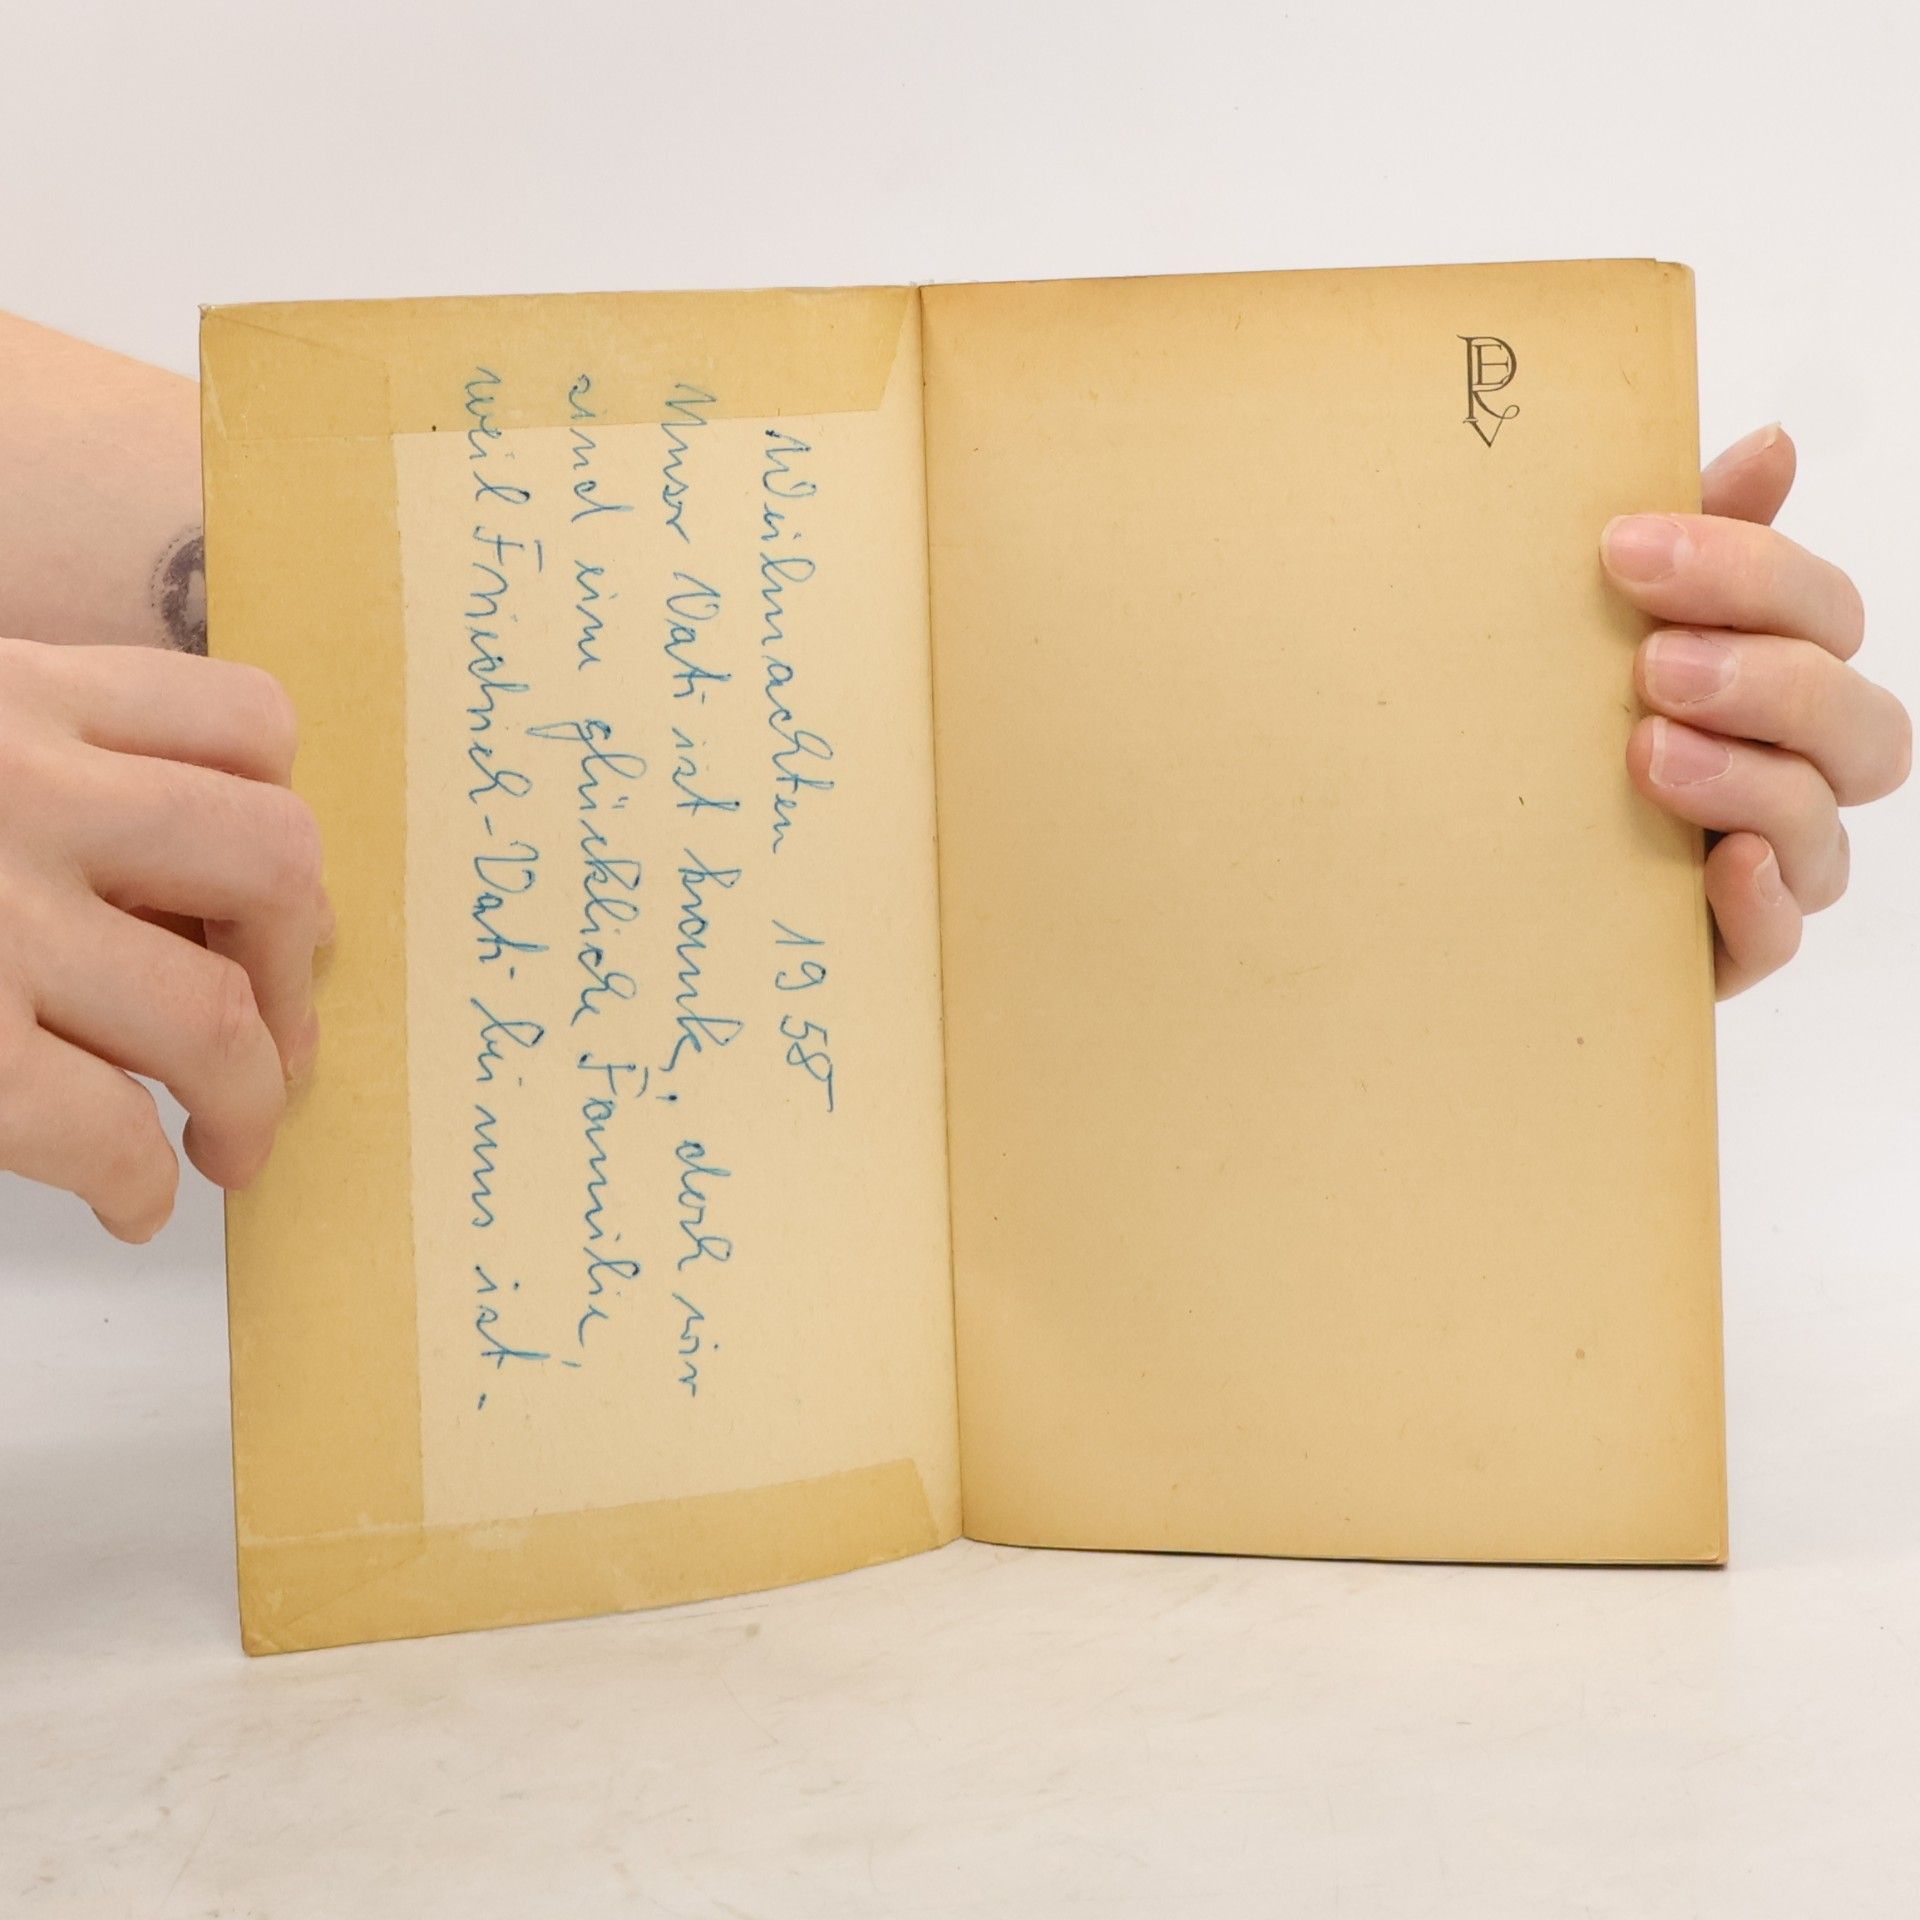 Weihnachten 1958
Unser Vati ist krank, doch wir
sind eine glückliche Familie,
weil Friedrich-Vati bei uns ist.